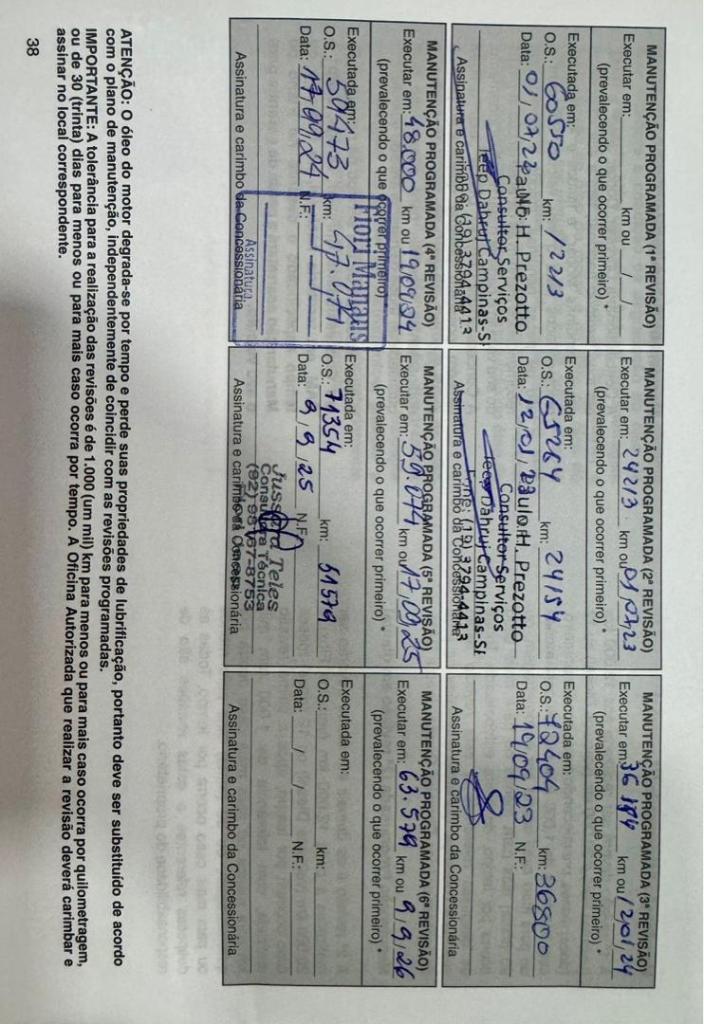 MANUTENÇÃO PROGRAMADA (1ª REVISÃO)
Executar em: km ou / /
(prevalecendo o que ocorrer primeiro) *
Executada em:
O.S.: 60550 km: 12213
Data: 01/07/22 N.F.:
Paulo H. Prezotto
Consultor Serviços
Jeep Dahruj Campinas-S
Fone: (19) 3794-4413
Assinatura e carimbo da Concessionária
MANUTENÇÃO PROGRAMADA (2ª REVISÃO)
Executar em: 24213 km ou 01/07/23
(prevalecendo o que ocorrer primeiro) *
Executada em:
O.S.: 65264 km: 24154
Data: 12/01/23
Paulo H. Prezotto
Consultor Serviços
Jeep Dahruj Campinas-S
Fone: (19) 3794-4413
Assinatura e carimbo da Concessionária
MANUTENÇÃO PROGRAMADA (3ª REVISÃO)
Executar em: 36 km ou 12/01/24
(prevalecendo o que ocorrer primeiro) *
Executada em:
O.S.: 72404 km: 36800
Data: 19/09/23 N.F.:
Assinatura e carimbo da Concessionária
MANUTENÇÃO PROGRAMADA (4ª REVISÃO)
Executar em: 48.000 km ou 19/09/24
(prevalecendo o que ocorrer primeiro)
Executada em:
O.S.: 59473 km: 47.074
Data: 17/09/24 N.F.:
Fiori Manaus
Assinatura
Assinatura e carimbo da Concessionária
MANUTENÇÃO PROGRAMADA (5ª REVISÃO)
Executar em: 59.074 km ou 17/09/25
(prevalecendo o que ocorrer primeiro) *
Executada em:
O.S.: 71354 km: 51579
Data: 9/9/25 N.F.:
Jussara Teles
Consultora Técnica
(92) 98167-8753
Assinatura e carimbo da Concessionária
MANUTENÇÃO PROGRAMADA (6ª REVISÃO)
Executar em: 63.579 km ou 9/9/26
(prevalecendo o que ocorrer primeiro) *
Executada em:
O.S.: km:
Data: / / N.F.:
Assinatura e carimbo da Concessionária
ATENÇÃO: O óleo do motor degrada-se por tempo e perde suas propriedades de lubrificação, portanto deve ser substituído de acordo
com o plano de manutenção, independentemente de coincidir com as revisões programadas.
IMPORTANTE: A tolerância para a realização das revisões é de 1.000 (um mil) km para menos ou para mais caso ocorra por quilometragem,
ou de 30 (trinta) dias para menos ou para mais caso ocorra por tempo. A Oficina Autorizada que realizar a revisão deverá carimbar e
assinar no local correspondente.
38